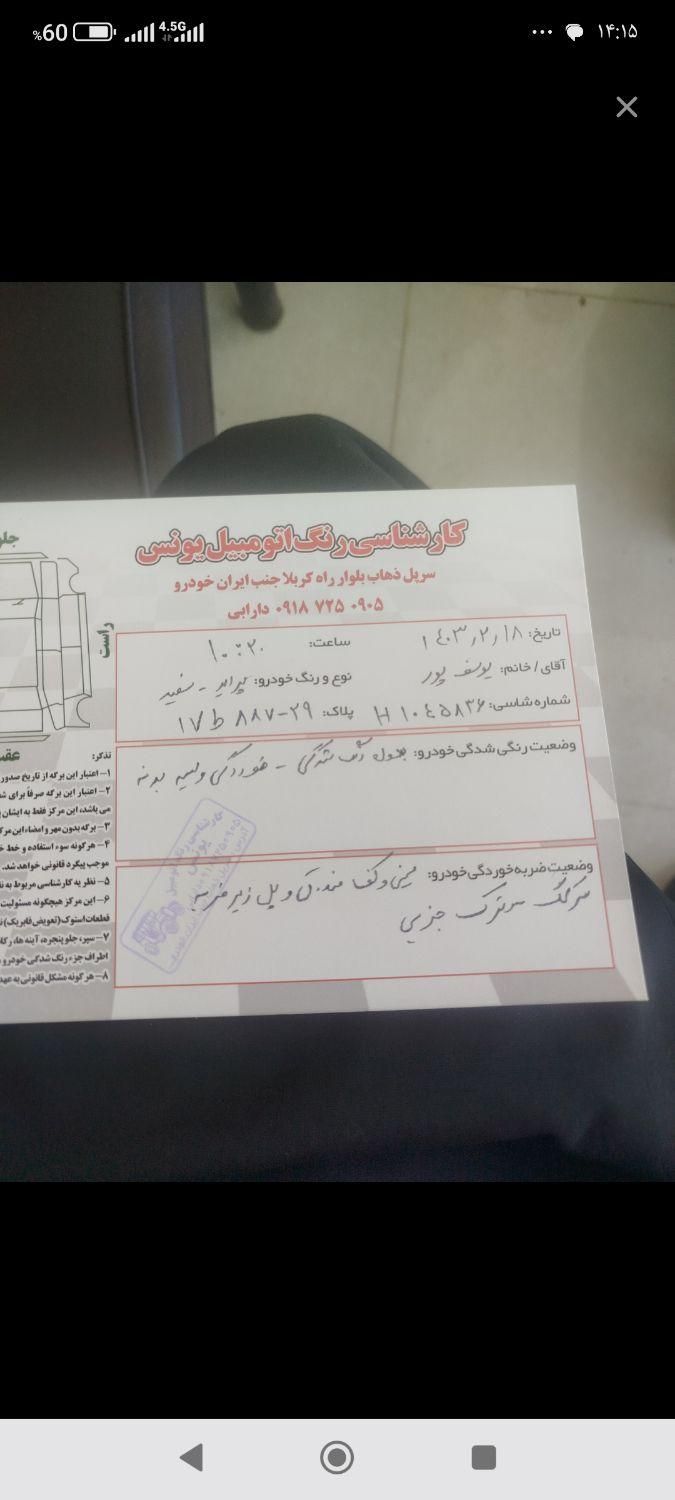 %60 4.5G ۱۴:۱۵
کارشناسی رنگ اتومبیل یونس
سرپل ذهاب بلوار راه کربلا جنب ایران خودرو
۰۹۱۸ ۷۲۵ ۰۹۰۵ دارابی
تاریخ: ۱۴۰۳٫۲٫۱۸ ساعت: ۱۰:۲۰
آقای / خانم: یوسف پور نوع و رنگ خودرو: پراید - سفید
شماره شاسی: H۱۰۴۵۸۳۶ پلاک: ۱۷ ط ۸۸۷-۲۹
وضعیت رنگی شدگی خودرو: - خوردگی و لیسه بدنه
وضعیت ضربه خوردگی خودرو: سینی و کف
جزیی
جلو
راست
عقب
تذکر:
۱- اعتبار این برگه از تاریخ صدور
۲- اعتبار این برگه صرفاً برای
می باشد، این مرکز فقط به ایشان
۳- برگه بدون مهر و امضاء این مرکز
۴- هرگونه سوء استفاده و خط
موجب پیگرد قانونی خواهد شد.
۵- نظریه کارشناسی مربوط به
۶- این مرکز هیچگونه مسئولیت
قطعات استوک (تعویض فابریک)
۷- سپر، جلو پنجره، آینه ها،
اطراف جزء رنگ شدگی خودرو
۸- هرگونه مشکل قانونی به
کارشناسی رنگ اتومبیل
یونس